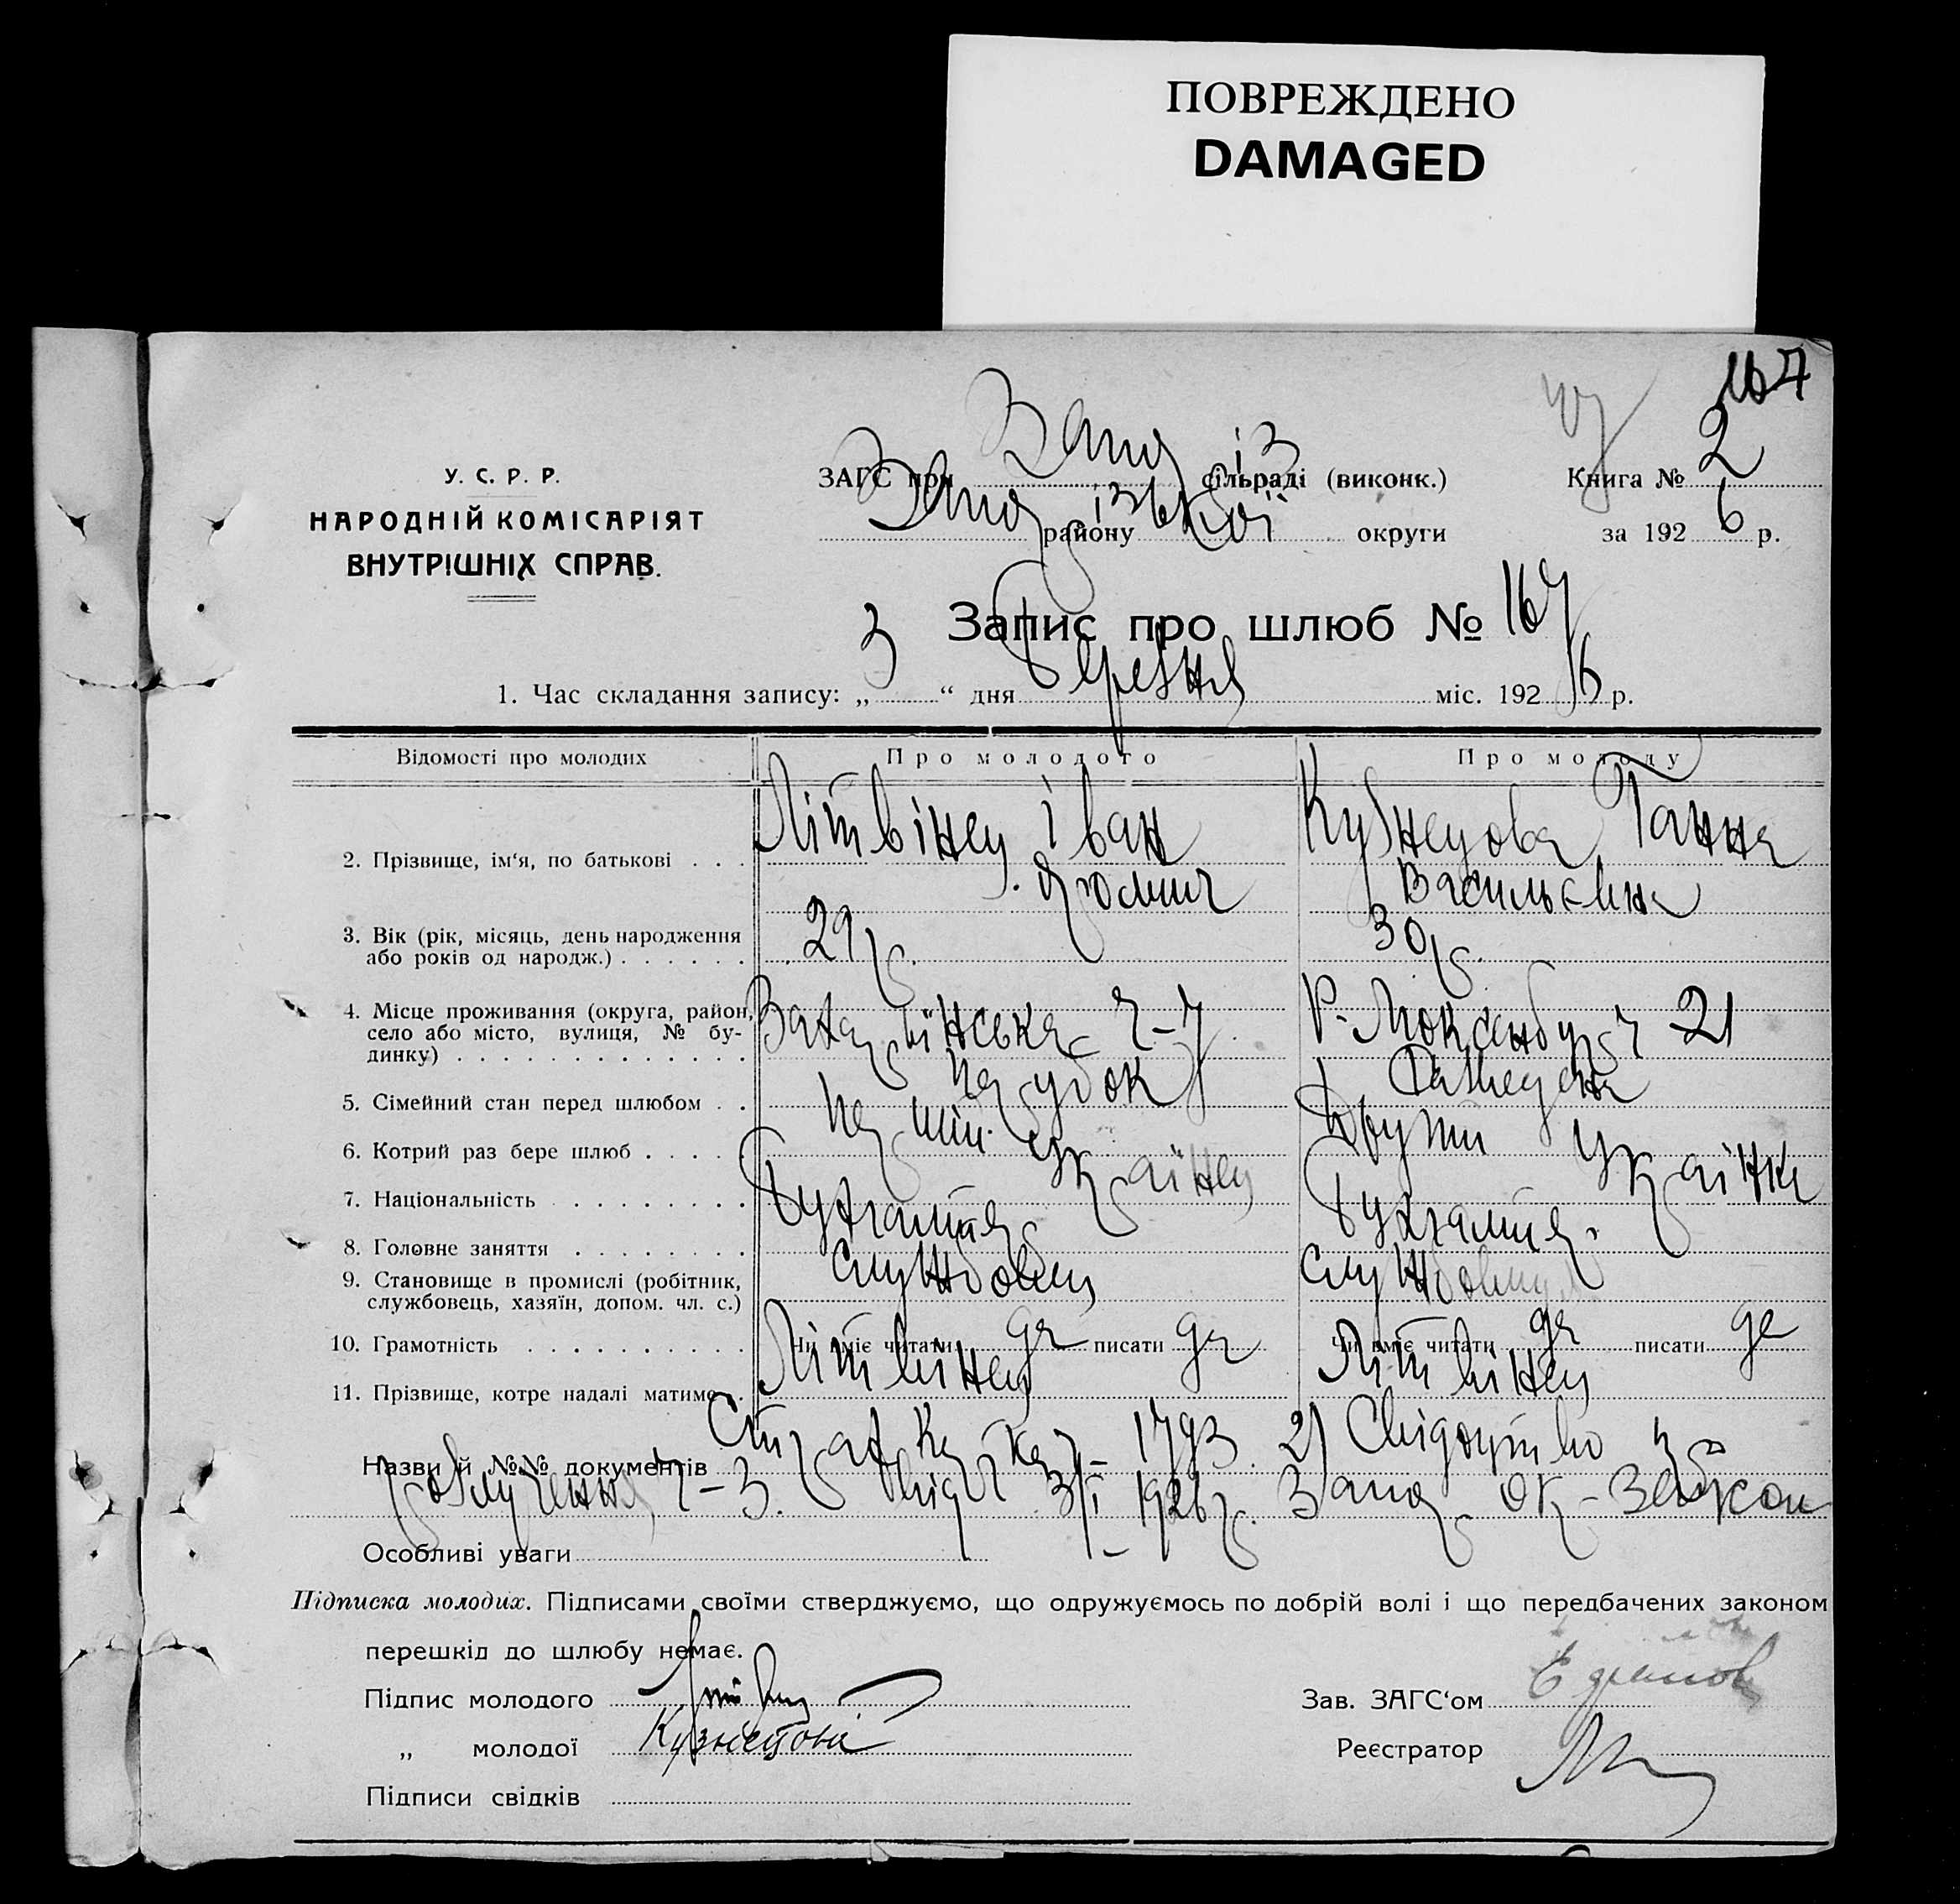 ПОВРЕЖДЕНО
DAMAGED
167
У. С. Р. Р.
НАРОДНІЙ КОМІСАРІЯТ
ВНУТРІШНІХ СПРАВ.
ЗАГС при Запоріз сільраді (виконк.)
Запорізької району округи
Книга № 2
за 1926 р.
Запис про шлюб № 167
1. Час складання запису: „ 3 “ дня Березня міс. 1926 р.
Відомості про молодих Про молодого Про молоду
2. Прізвище, ім‘я, по батькові . . . Літвінец Іван Кузнецова Ганна
Васильєвна
3. Вік (рік, місяць, день народження
або років од народж.) . . . . . . 29 р. 30 р.
4. Місце проживання (округа, район,
село або місто, вулиця, № бу-
динку) . . . . . . . . . . . . . . ч-7 Р. Люксенбург ч 21
5. Сімейний стан перед шлюбом . . парубок
6. Котрий раз бере шлюб . . . . Другий
7. Національність . . . . . . . . Українец Українка
8. Головне заняття . . . . . . . . Бухгалтер Бухгалтер
9. Становище в промислі (робітник,
службовець, хазяїн, допом. чл. с.) службовец службовиця
10. Грамотність . . . . . . . . . . Чи вміє читати да писати да Чи вміє читати да писати да
11. Прізвище, котре надалі матиме . . Літвінец Літвінец
Назви й №№ документів Страх Картка 1793 2) Свідоцтво
розлучення ч-3. від 3/І-1926 р. Запор. ок-
Особливі уваги
Підписка молодих. Підписами своїми стверджуємо, що одружуємось по добрій волі і що передбачених законом
перешкід до шлюбу немає.
Підпис молодого Зав. ЗАГС‘ом
„ молодої Кузнецова Реєстратор
Підписи свідків